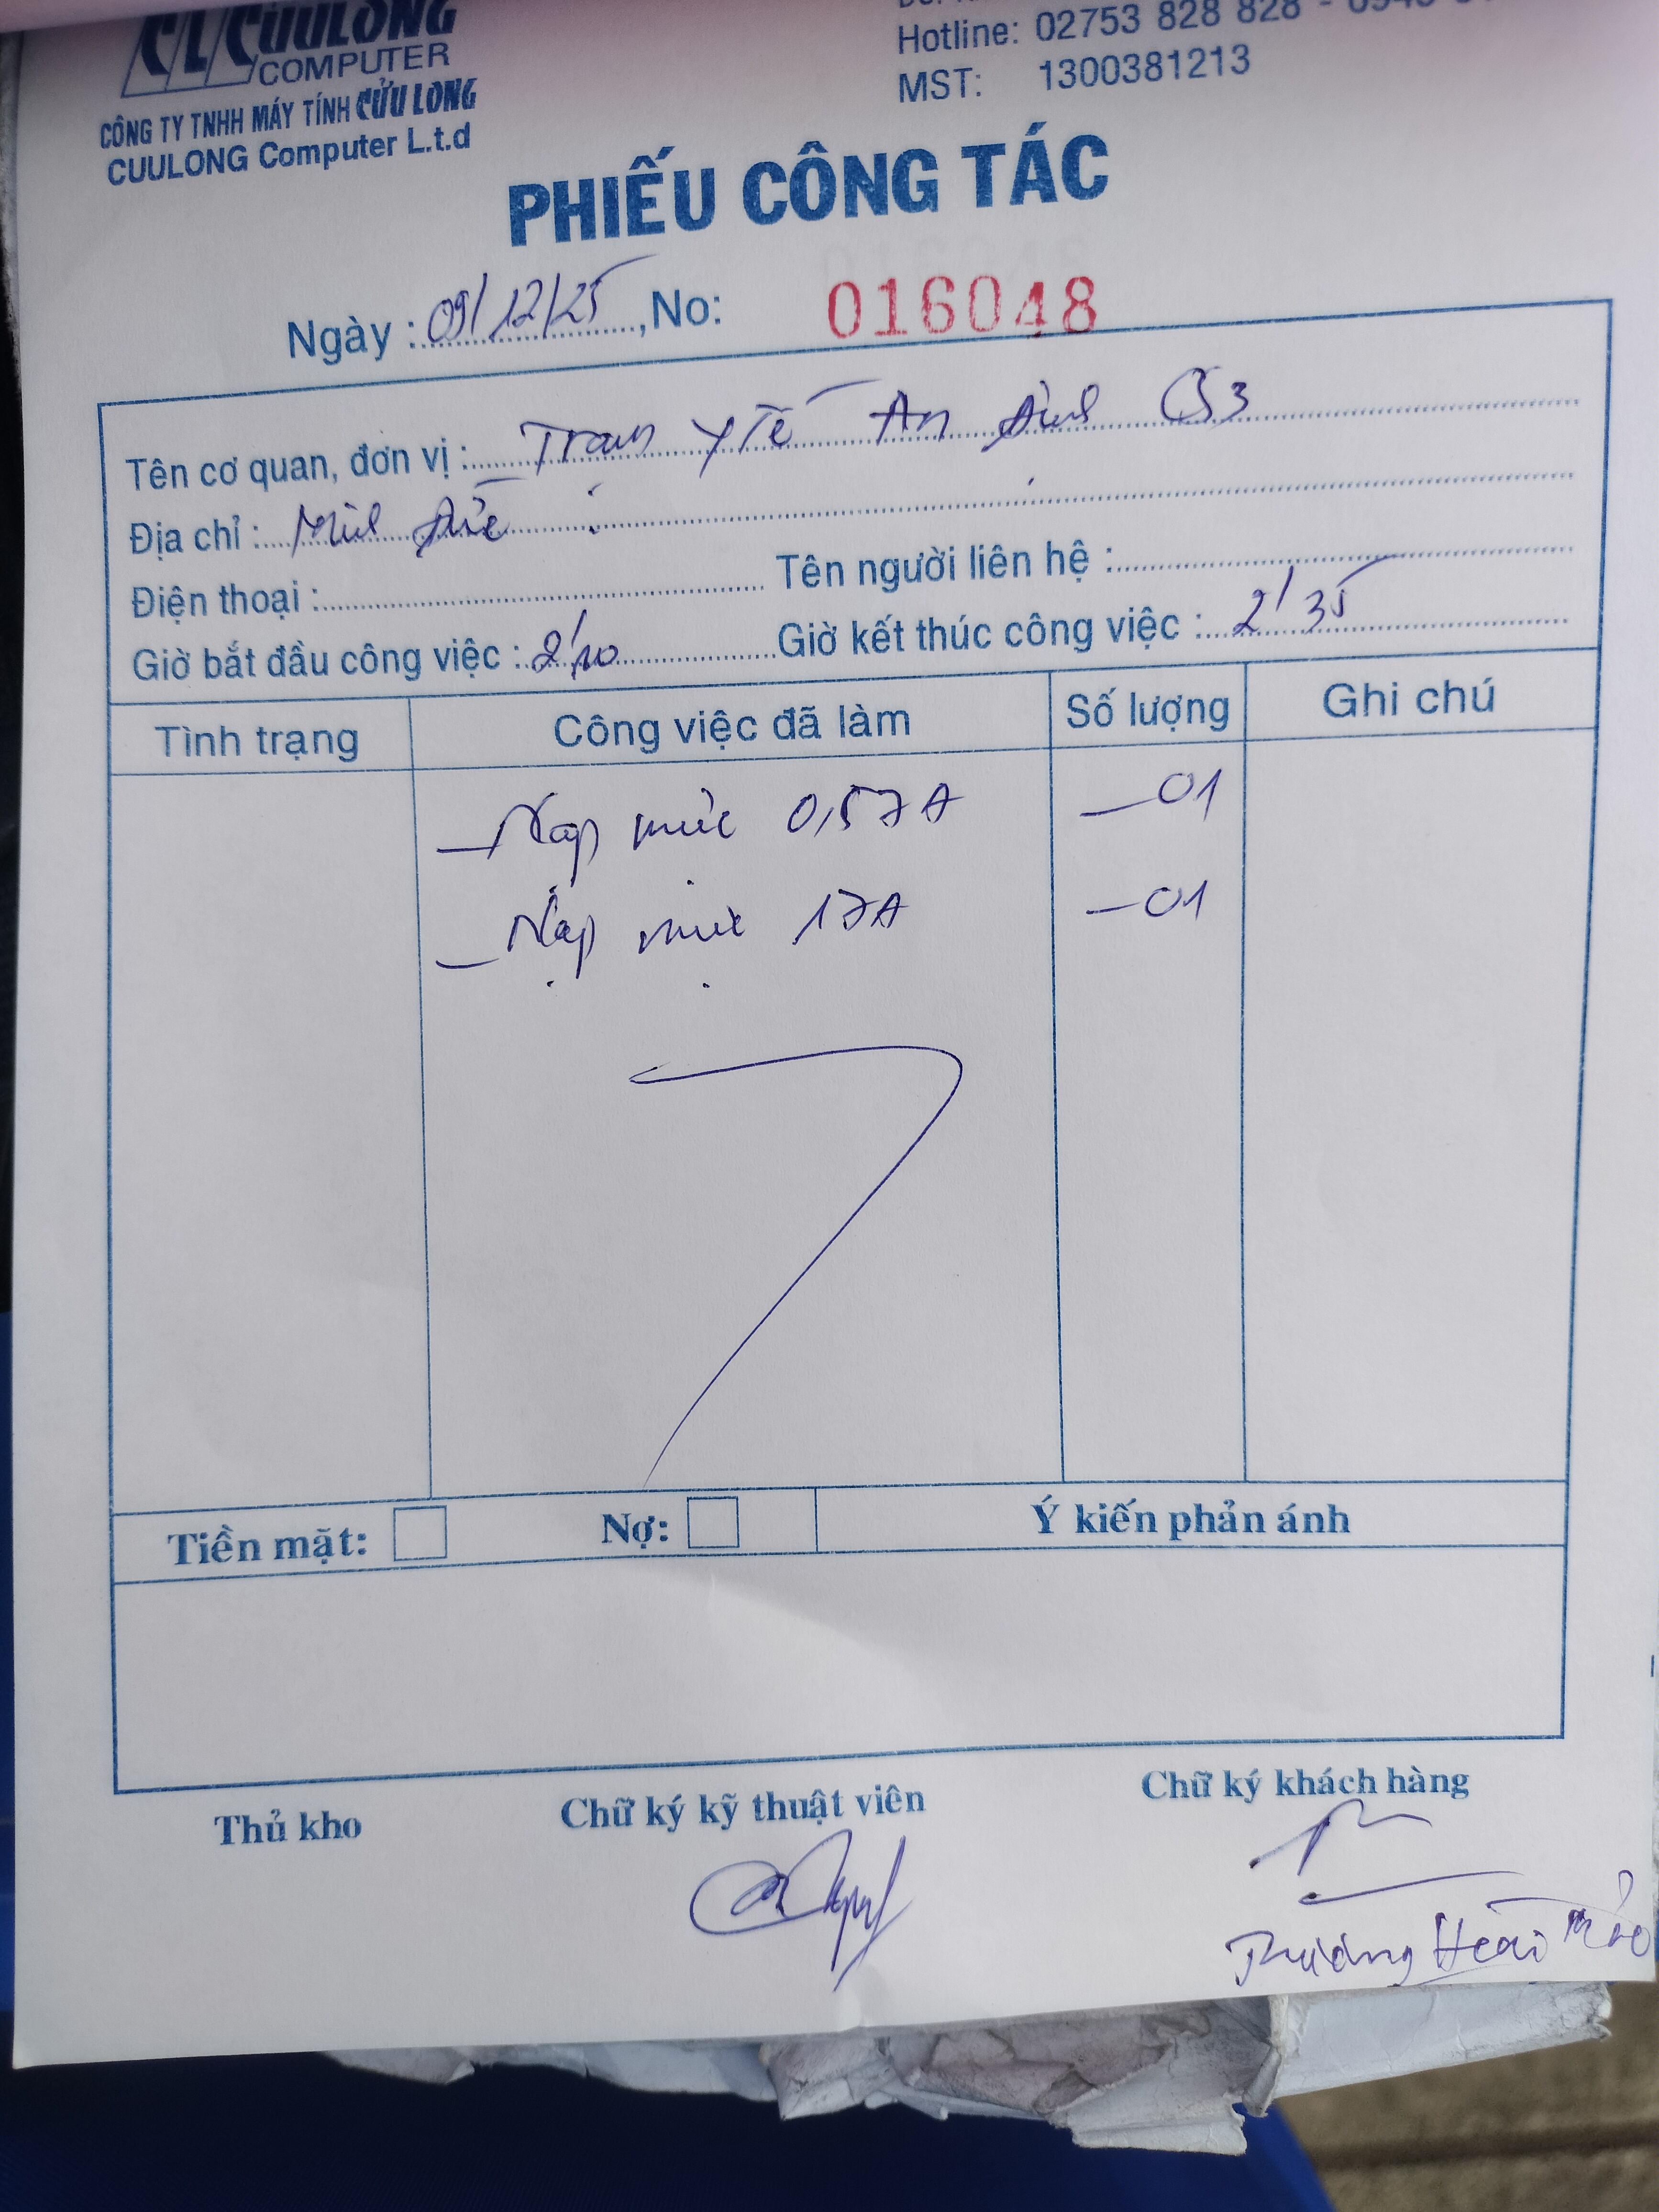 CUULONG
COMPUTER
CÔNG TY TNHH MÁY TÍNH CỬU LONG
CUULONG Computer L.t.d
Hotline: 02753 828 828 -
MST: 1300381213
PHIẾU CÔNG TÁC
Ngày : 09/12/25, No: 016048
Tên cơ quan, đơn vị : Trạm Y Tế An Định CS3
Địa chỉ : Minh Đức
Điện thoại : Tên người liên hệ :
Giờ bắt đầu công việc : 2'10 Giờ kết thúc công việc : 2'35
Tình trạng Công việc đã làm Số lượng Ghi chú
- Nạp mực 0,57A - 01
- Nạp mực 17A - 01
Tiền mặt: Nợ: Ý kiến phản ánh
Thủ kho Chữ ký kỹ thuật viên Chữ ký khách hàng
Hoài